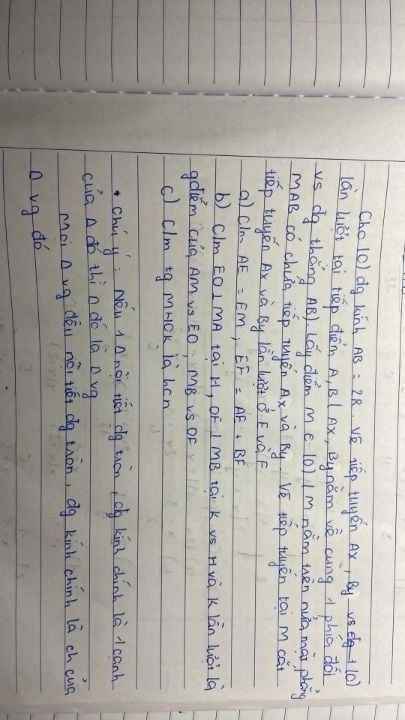 Cho (O) đg kính AB = 2R. Vẽ tiếp tuyến Ax, By vs (O)
lần lượt tại tiếp điểm A, B (Ax, By nằm về cùng 1 phía đối
vs đg thẳng AB). Lấy điểm M ∈ (O) (M nằm trên nửa mặt phẳng
MAB có chứa tiếp tuyến Ax và By. Vẽ tiếp tuyến tại M cắt
tiếp tuyến Ax và By lần lượt ở E và F
a) C/m AE = EM, EF = AE + BF
b) C/m EO ⊥ MA tại H, OF ⊥ MB tại K vs H và K lần lượt là
gđiểm của AM vs EO, MB vs OF
c) C/m tg MHOK là hcn
• Chú ý: Nếu 1 Δ nội tiết đg tròn, đg kính chính là 1 cạnh
của Δ đó thì Δ đó là Δ vg
Mọi Δ vg đều nội tiết đg tròn, đg kính chính là ch của
Δ vg đó